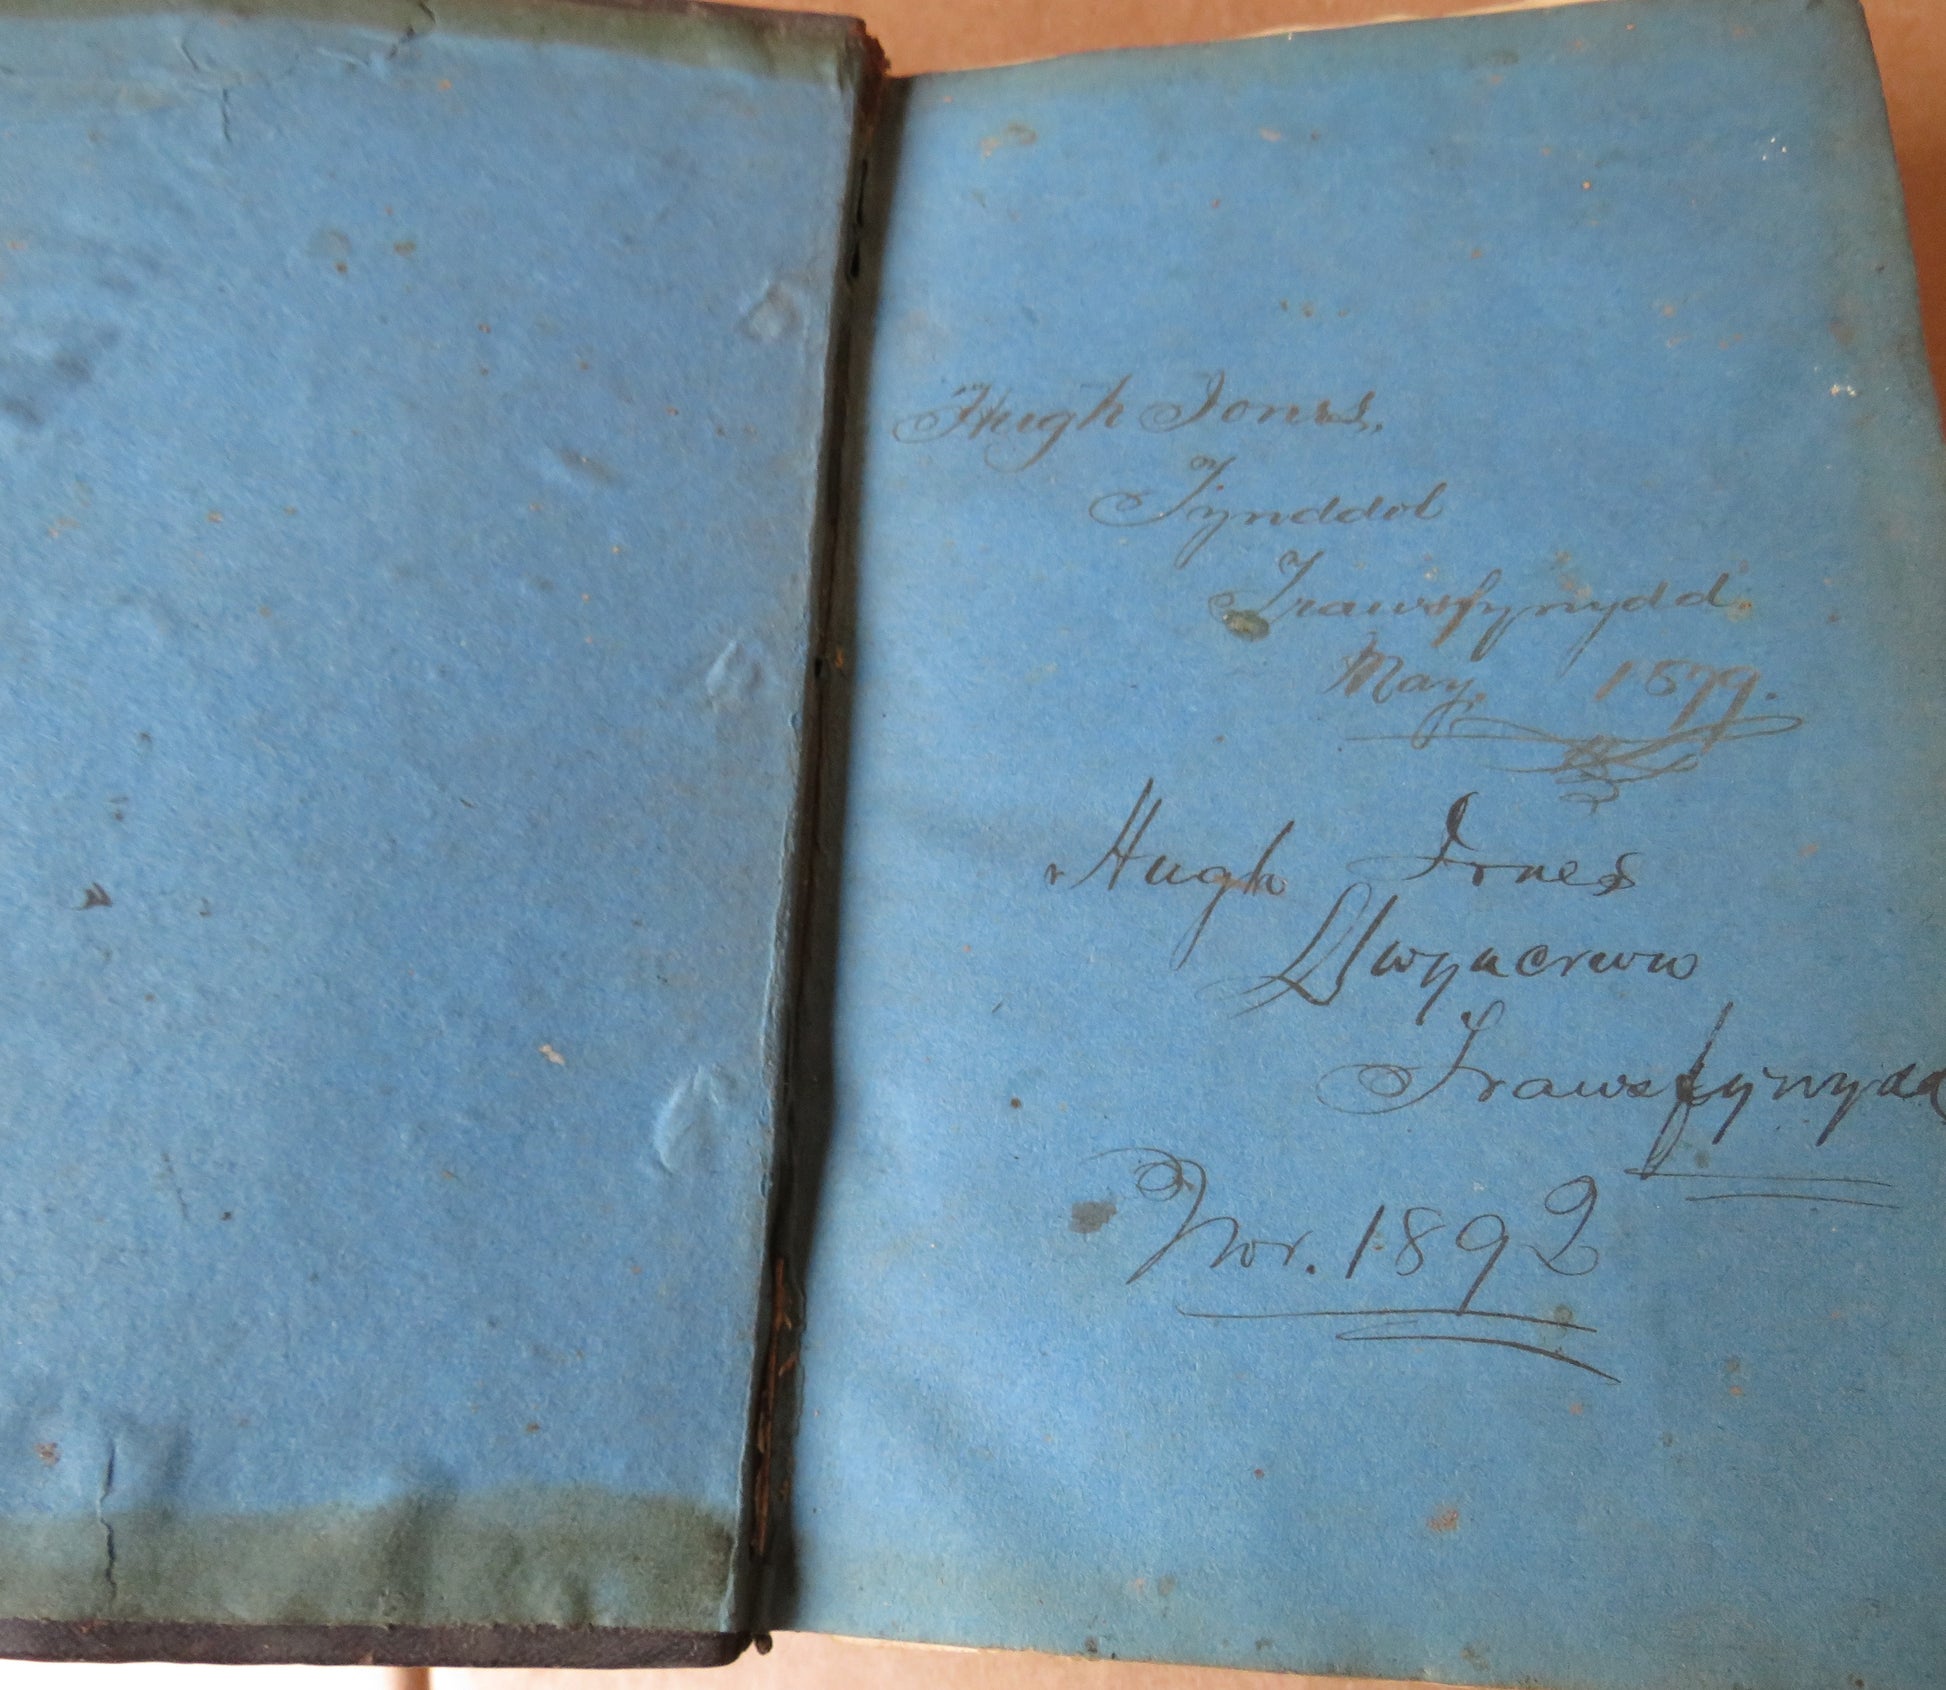 Hugh Jones,
Tynddol
Trawsfynydd.
May, 1879.
Hugh Jones
Llwyncrwn
Trawsfynydd
Nov. 1892